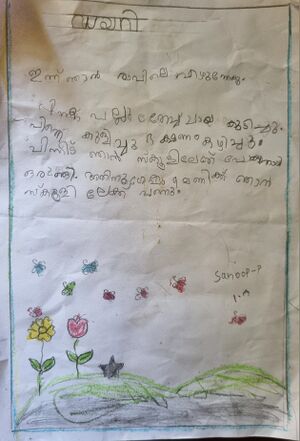 ഡയറി
ഇന്ന് ഞാൻ രാവിലെ എഴുന്നേറ്റു.
പിന്നെ പല്ലു തേച്ചു ചായ കുടിച്ചു.
പിന്നെ കുളിച്ചു ഭക്ഷണം കഴിച്ചു.
പിന്നീട് ഞാൻ സ്കൂളിലേക്ക് പോകാൻ
ഒരുങ്ങി. അതിനുശേഷം 9 മണിക്ക് ഞാൻ
സ്കൂളി ലേക്ക് പന്നു.
Sanoop-P
1.A